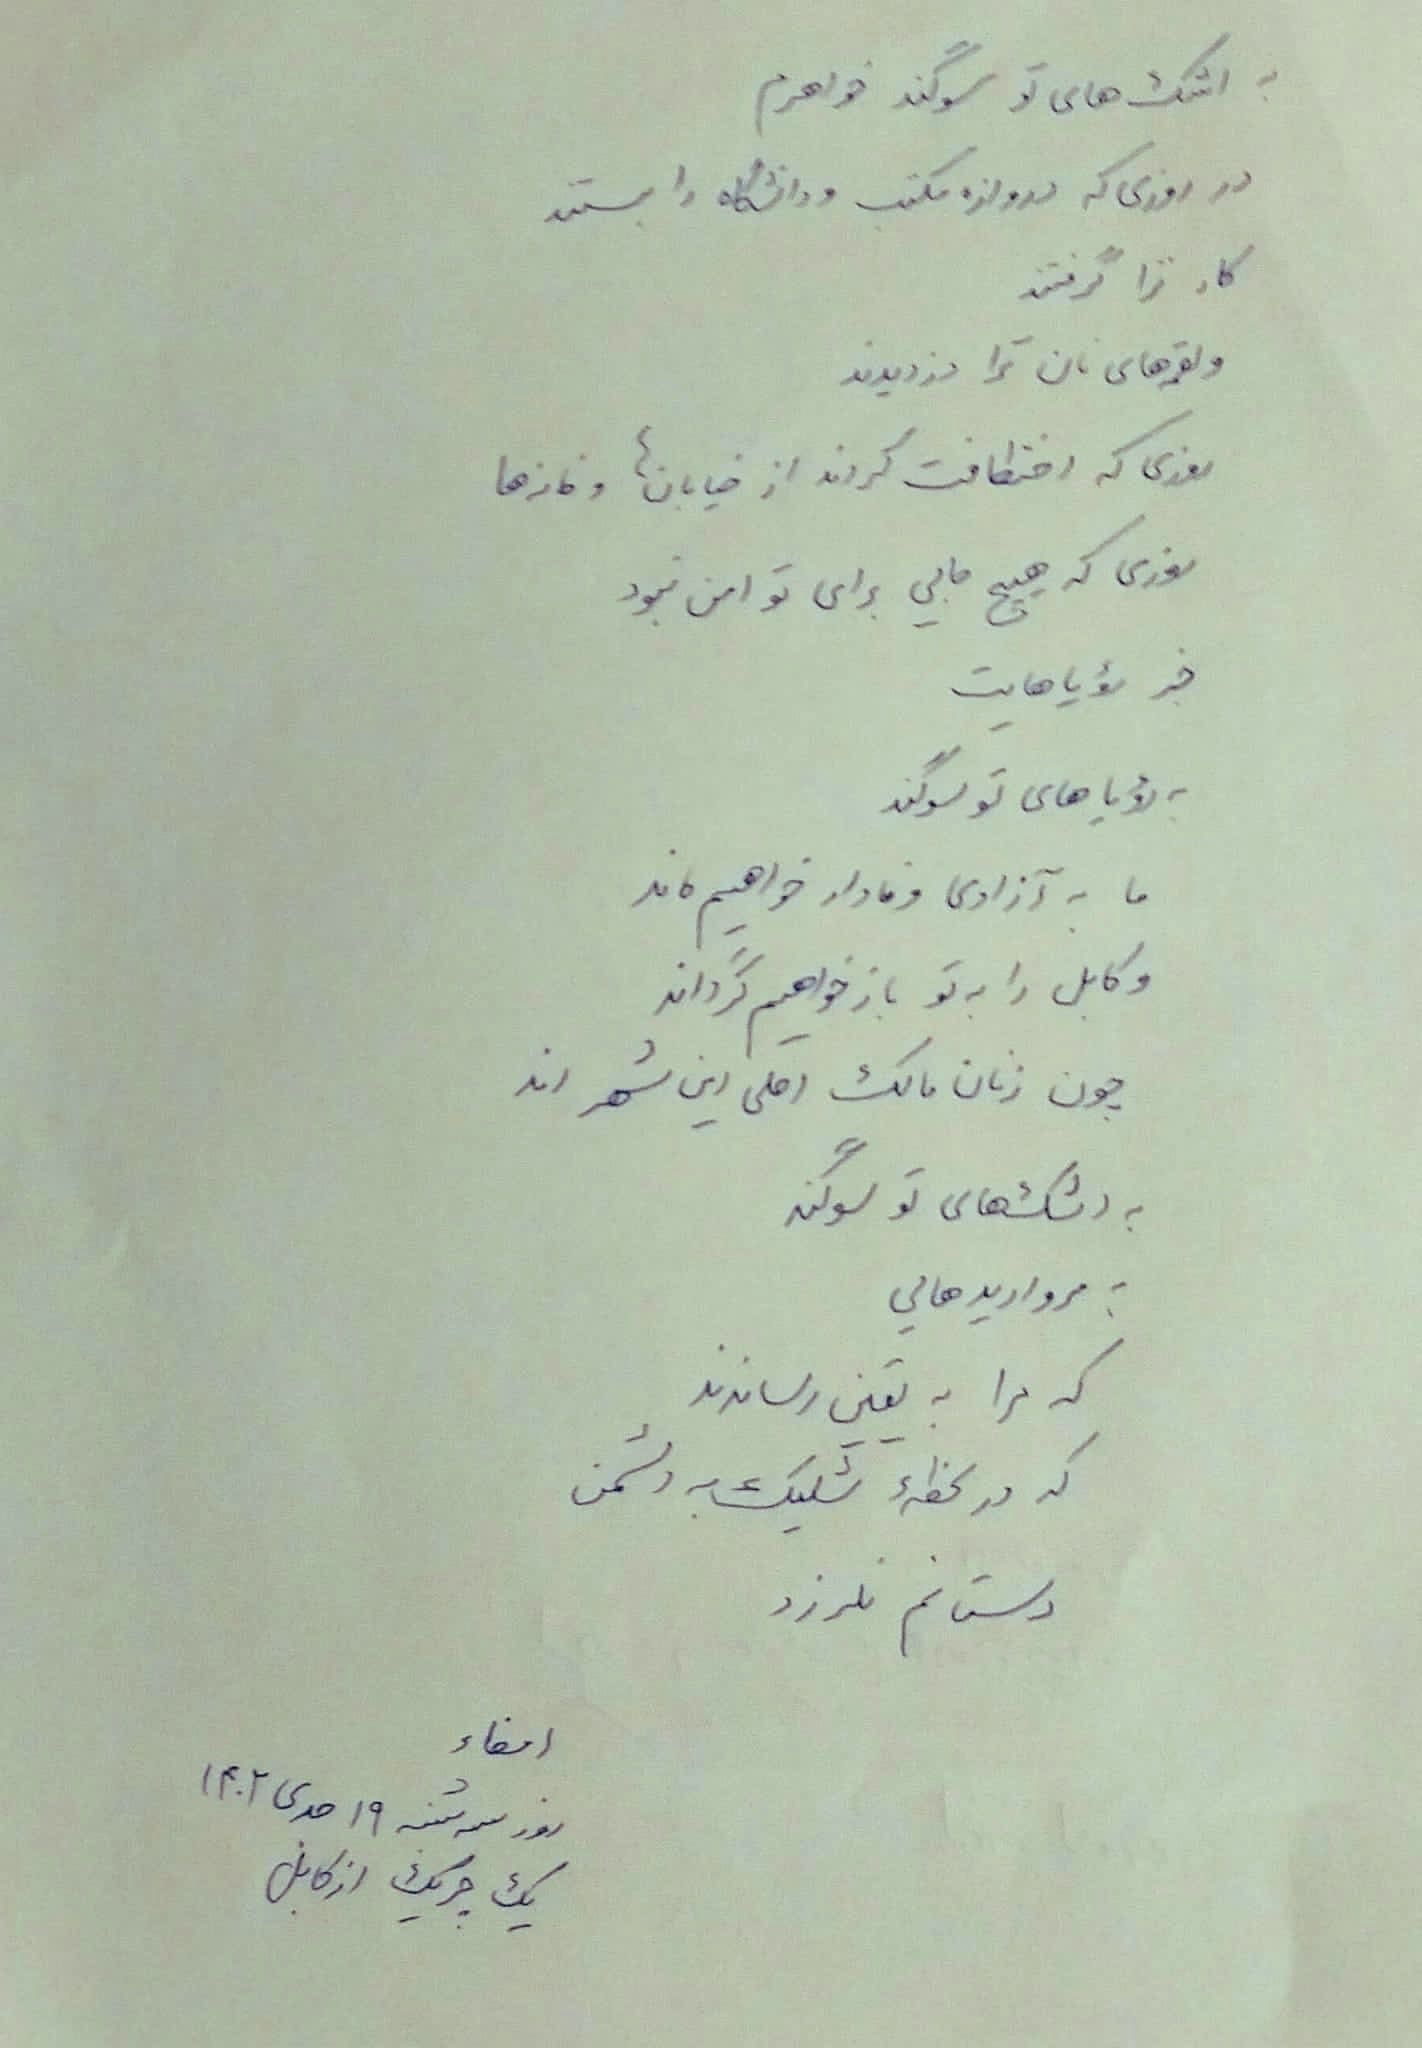 به اشک‌های تو سوگند خواهرم
در روزی که دروازه مکتب و دانشگاه را بستند
کار ترا گرفتند
و لقمه‌های نان ترا دزدیدند
روزی که اختطافت کردند از خیابان‌ها و خانه‌ها
روزی که هیچ جایی برای تو امن نبود
جز رؤیاهایت
به رؤیاهای تو سوگند
ما به آزادی وفادار خواهیم ماند
و کابل را به تو باز خواهیم گرداند
چون زنان مالک اصلی این شهر اند
به اشک‌های تو سوگند
به مرواریدهایی
که مرا به یقینی رساندند
که در لحظهٔ شلیک به دشمن
دستانم نلرزد
امضاء
روز سه شنبه ۱۹ جدی ۱۴۰۲
یک چریک از کابل